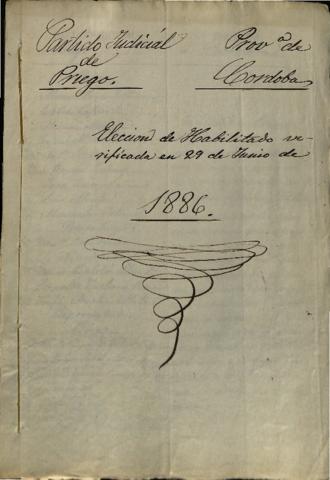 Partido Judicial
de
Priego.
Prov.ª de
Cordoba
Eleccion de Habilitado ve-
rificada en 29 de Junio de
1886.